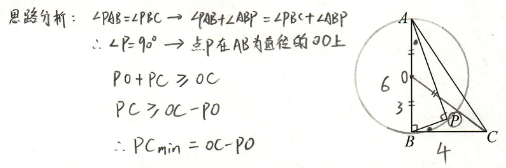 思路分析: ∠PAB=∠PBC → ∠PAB+∠ABP=∠PBC+∠ABP
∴ ∠P=90° → 点P在AB为直径的⊙O上
PO+PC ≥ OC
PC ≥ OC-PO
∴ PCmin = OC-PO
A
6
O
3
P
B
C
4